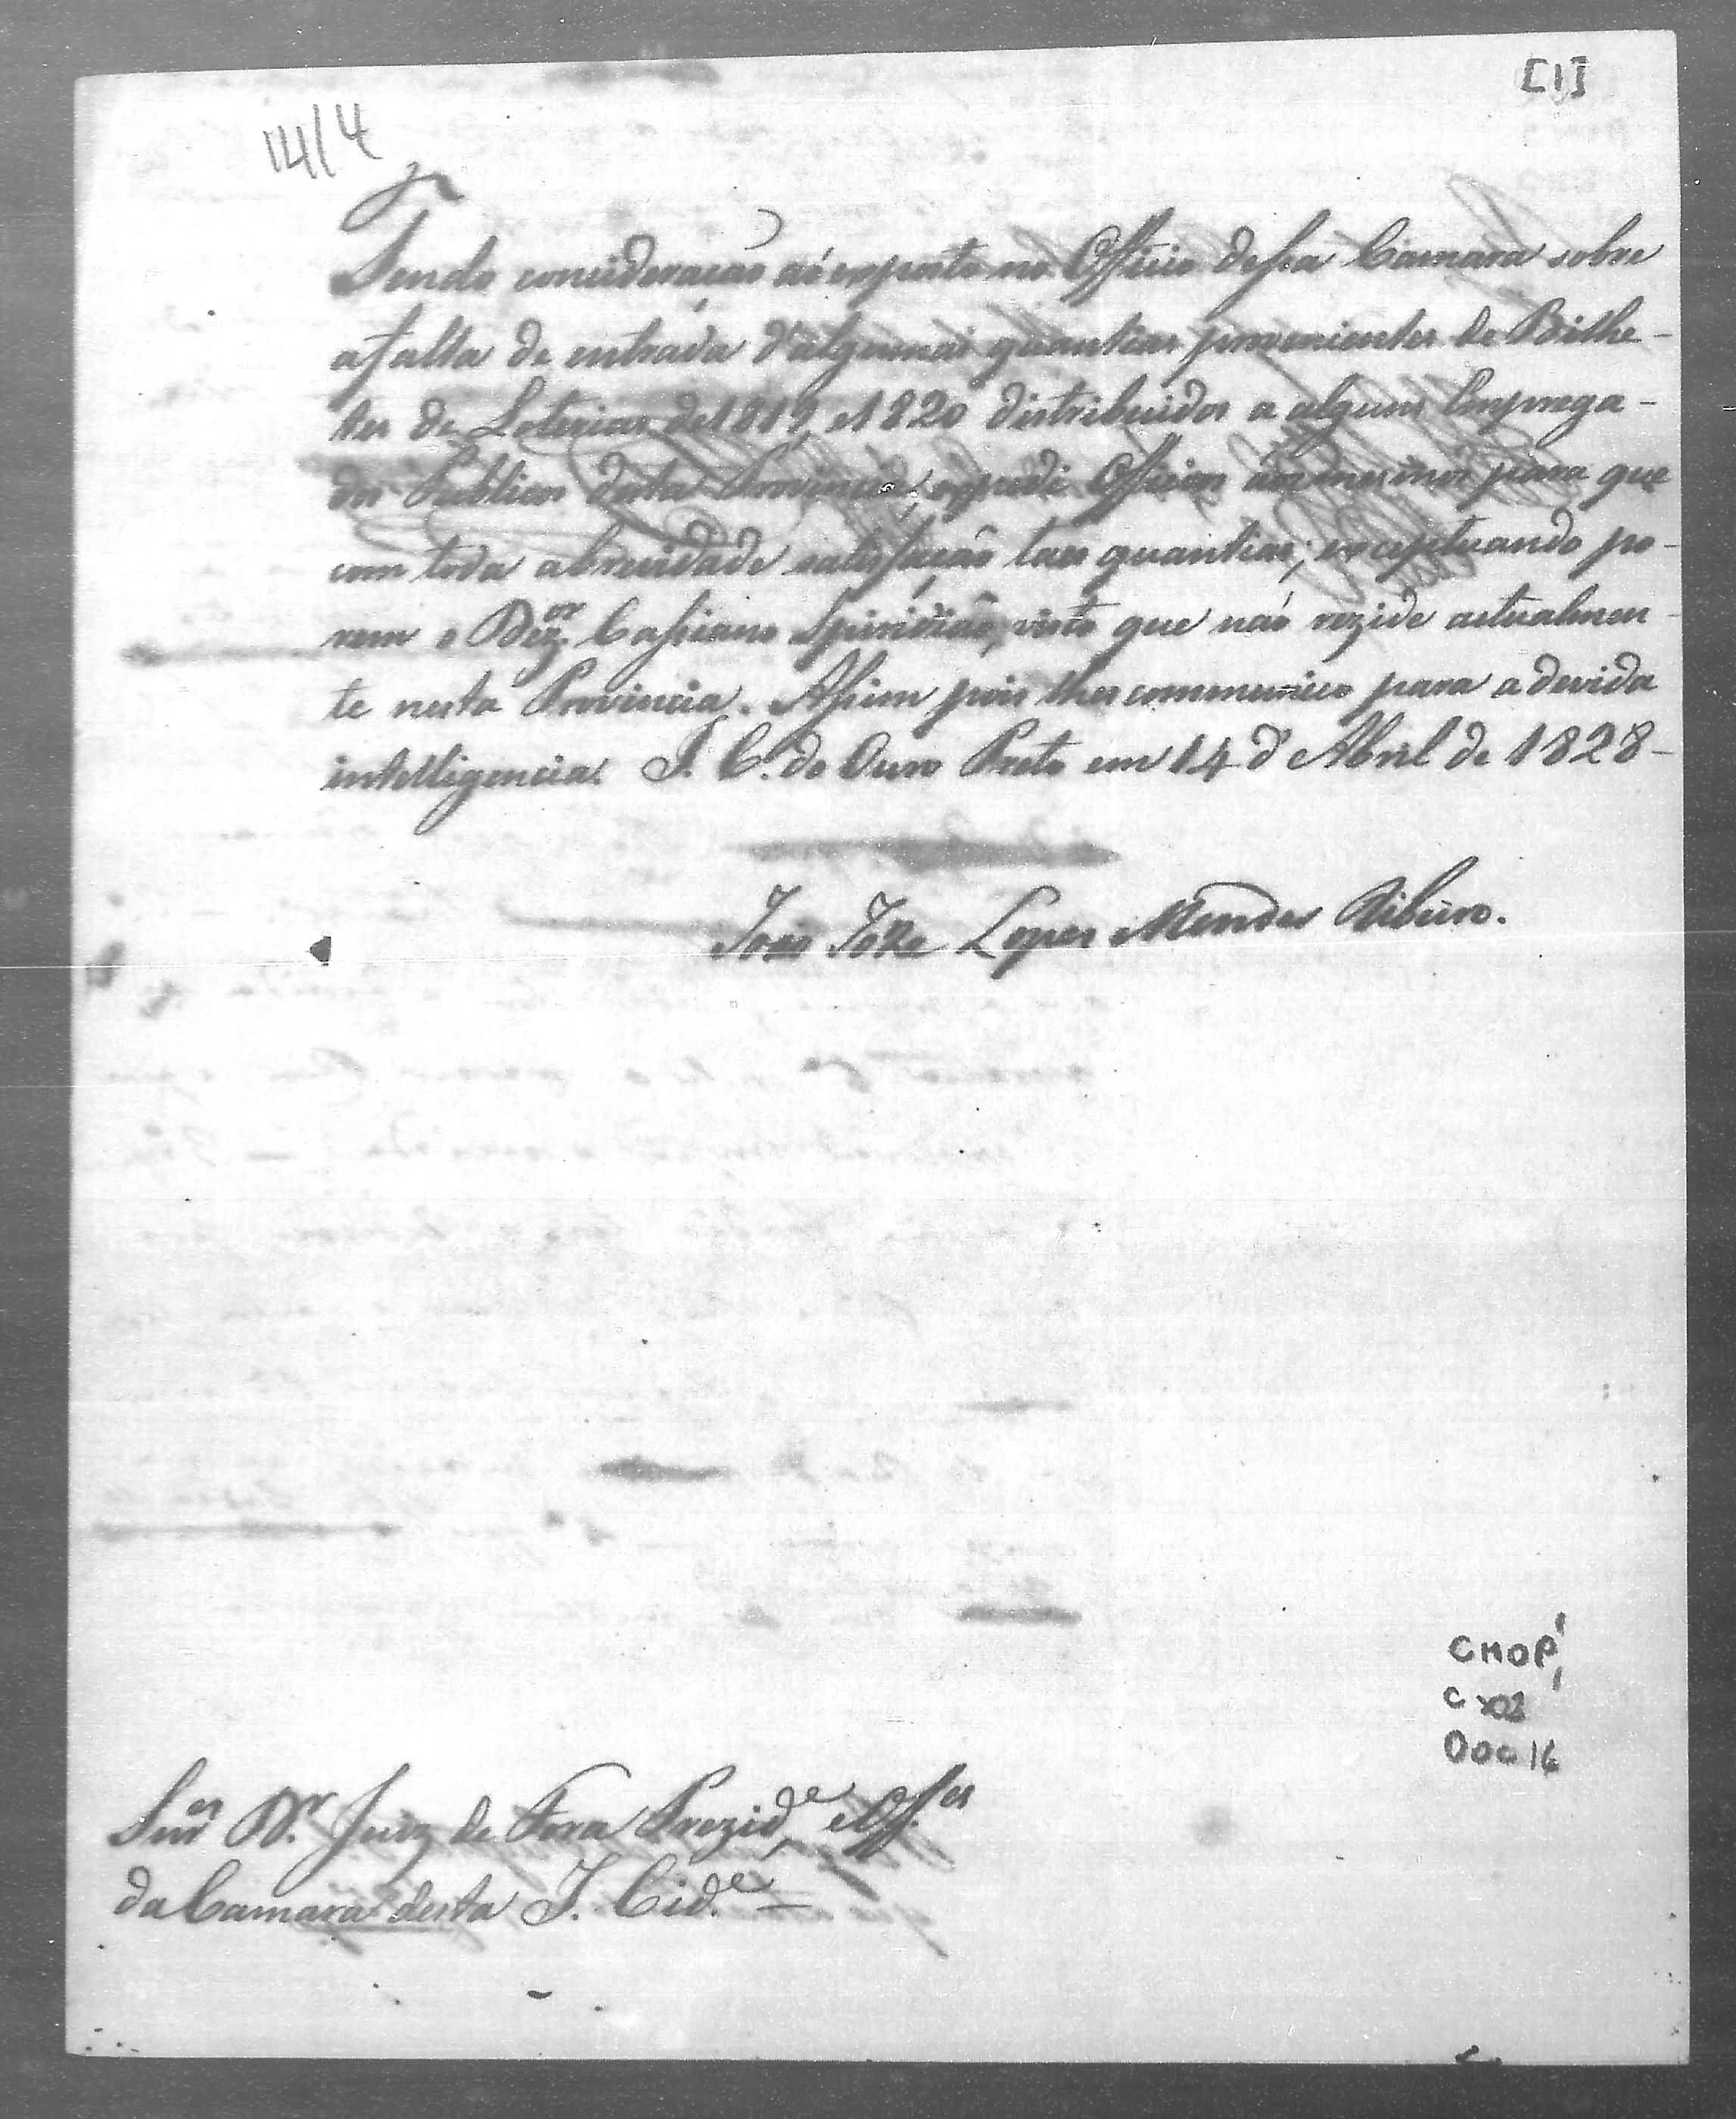 [1]
14/4
Tendo consideração aó exposto no Officio dessa Camara sobre
a falta de entrada d'algumas quantias provenientes de Bilhe-
tes de Loterias de 1819, e 1820 distribuidos a alguns Emprega-
dos Publicos desta Provincia, expedi Officios áos mesmos para que
com toda a brevidade satisfação taes quantias; exceptuando po-
rem o Dez.or Cassiano Spiridião, visto que não rezide actualmen-
te nesta Provincia. Assim pois lhes communico para a devida
intelligencia. I. C. do Ouro Preto em 14 d'Abril de 1828-
João Joze Lopes Mendes Ribeiro.
CMOP
Cx 02
Doc 16
Snr.es D.r Juiz de Fora Prezid.e e Off.es
da Camara desta I. Cid.e —